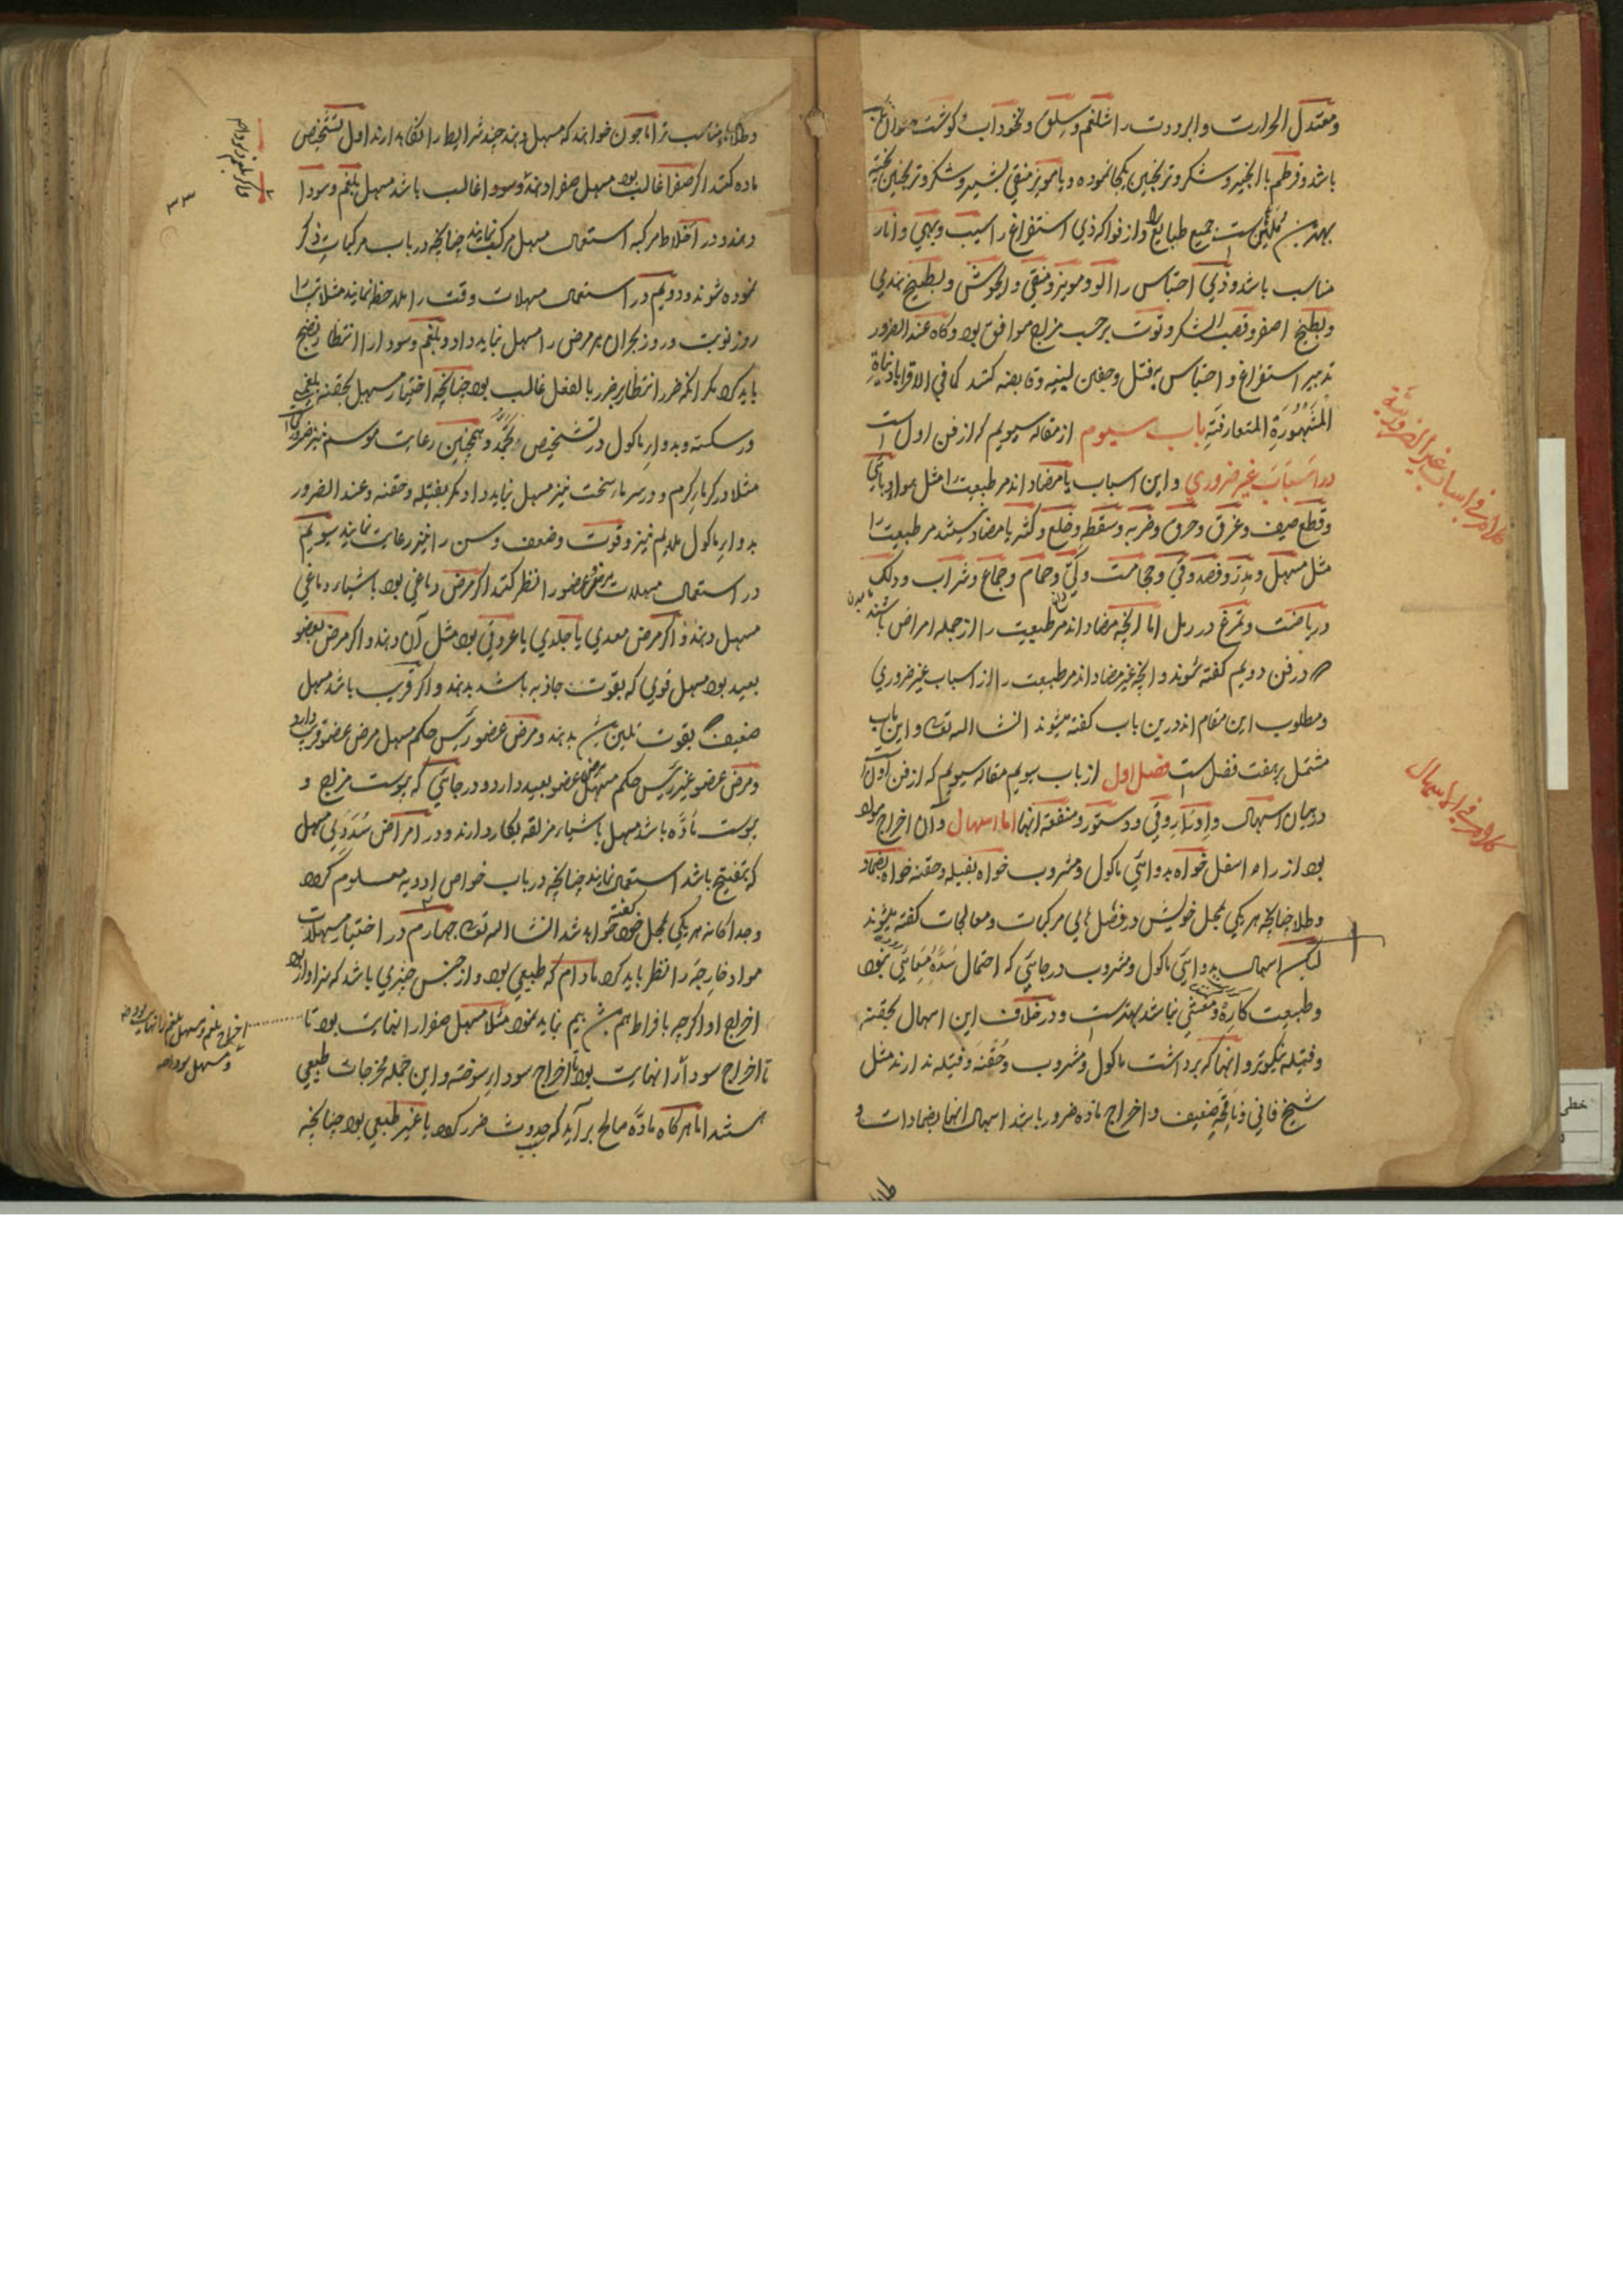 ومعتدل الحرارت والبرودت را شلغم و سلق و نخوداب و گوشت حیوان
باشد و قرطم با انجیر و شکر و ترنجبین یکجا نموده و یا مویز منقی بشیر و شکر و ترنجبین پخته
بهترین ملین ست جمیع طبایع را و از فواکه ذی استفراغ را سیب و بهی و انار
مناسب باشد و ذی احتباس را آلو و مویز منقی و آلجوش و بطیخ هندی
و بطیخ اصفر و قصب السکر و توت برحسب مزاج موافق بود و گاه عند الضرور
تدبیر استفراغ و احتباس بفتل و حقن لینیه و قابضه کنند کما فی الاقرابادینات
المشهورة المتعارفة باب سیوم از مقاله سیویم که از فن اول است
در اسباب غیر ضروری و این اسباب یا مضاد اند مر طبیعت را مثل هواء وبائی
و قطع صیف و غرق و حرق و ضربه و سقطه و خلع و کسر یا مضاد نیستند مر طبیعت را
مثل مسهل و مدر و فصد و قی و حجامت و کی و حمام و جماع و شراب و دلک
و ریاضت و تمرغ در رمل اما آنچه مضاد اند مر طبیعت را از جمله امراض باشند
در فن دویم گفته شوند و آنچه غیر مضاد اند مر طبیعت را از اسباب غیر ضروری
و مطلوب این مقام اند درین باب گفته میشوند انشا الله تعالی و این باب
مشتمل بر هفت فصل ست فصل اول از باب سیویم مقاله سیویم که از فن اول
در بیان اسهال و ادرار و قی و دستور و منفعة آنها اما اسهال و آن اخراج مواد
بود از راه اسفل خواه بدوائی ماکول و مشروب خواه بفتیله و حقنه خواه بضماد
و طلا چنانچه هر یکی بمحل خویش در فصل های مرکبات و معالجات گفته میشوند
لیکن اسهال بدوائی ماکول و مشروب در جائی که احتمال سده معائی نبود
و طبیعت کاره و مغثی نباشد بهترست و در خلاف این اسهال بحقنه
و فتیله نیکوتر و آنها که برداشت ماکول و مشروب و حقنه و فتیله ندارند مثل
شیخ فانی و ناقه ضعیف و اخراج ماده ضرور باشد اسهال آنها بضمادات و
کلام فی اسباب غیر الضروریة
کلام فی الاسهال
و طلا مناسب تر اما چون خواهند که مسهل دهند چند شرایط را نگاه دارند اول تشخیص
ماده کنند اگر صفرا غالب بود مسهل صفرا دهند و سودا غالب باشد مسهل بلغم و سودا
دهند و در اخلاط مرکبه استعمال مسهل مرکب نمایند چنانچه در باب مرکبات ذکر
نموده شوند و دویم در استعمال مسهلات وقت را ملاحظه نمایند مثلا تب را
روز نوبت و روز بحران هر مرض را مسهل نباید داد و بلغم و سودا را انتظار نضج
باید کرد مگر آنکه ضرر انتظار بر ضرر بالفعل غالب بود چنانچه اختیار مسهل بحقنه بلغمیه
در سکته و بدوار ماکول در تشخیص و تجمد و همچنین رعایت موسم نیز ضرور است
مثلا در گرما گرم و در سرما سخت نیز مسهل نباید داد مگر بفتیله و حقنه و عند الضرور
بدواء ماکول ملایم نیز و قوت و ضعف و سن را نیز رعایت نمایند سیویم
در استعمال مسهلات مرض عضو را نظر کنند اگر مرض دماغی بود باشیاء دماغی
مسهل دهند و اگر مرض معدی یا جلدی یا عروقی بود مثل آن دهند و اگر مرض بعضو
بعید بود مسهل قوی که بقوت جاذبه باشد بدهند و اگر قریب باشد مسهل
ضعیف بقوت ملین بدهند و مرض عضو رئیس حکم مسهل مرض عضو قریب دارد
و مرض عضو غیر رئیس حکم مسهل مرض عضو بعید دارد و در جائی که یبوست مزاج و
یبوست ماده باشد مسهل باشیاء مزلقه بکار دارند و در امراض سددی مسهل
که بتفتیح باشد استعمال نمایند چنانچه در باب خواص ادویه معلوم گردد
و جداگانه هر یکی بمحل خود گفته خواهد شد انشا الله تعالی چهارم در اختیار مسهلات
مواد خارجه را نظر باید کرد مادام که طبیعی بود و از جنس چیزی باشد که سزاوار بود
اخراج او اگرچه بافراط هم بیم نباید نمود مثلا مسهل صفرا را نهایت بود تا
تا اخراج سودا را نهایت بود تا اخراج سودا سوخته و این جمله مخرجات طبیعی
هستند اما هرگاه ماده صالح برآید که حدوث ضرر کرد یا غیر طبیعی بود چنانچه
اخراج بلغم و مسهل بلغم را نهایت بود
و مسهل سودا
۳۳
خطی